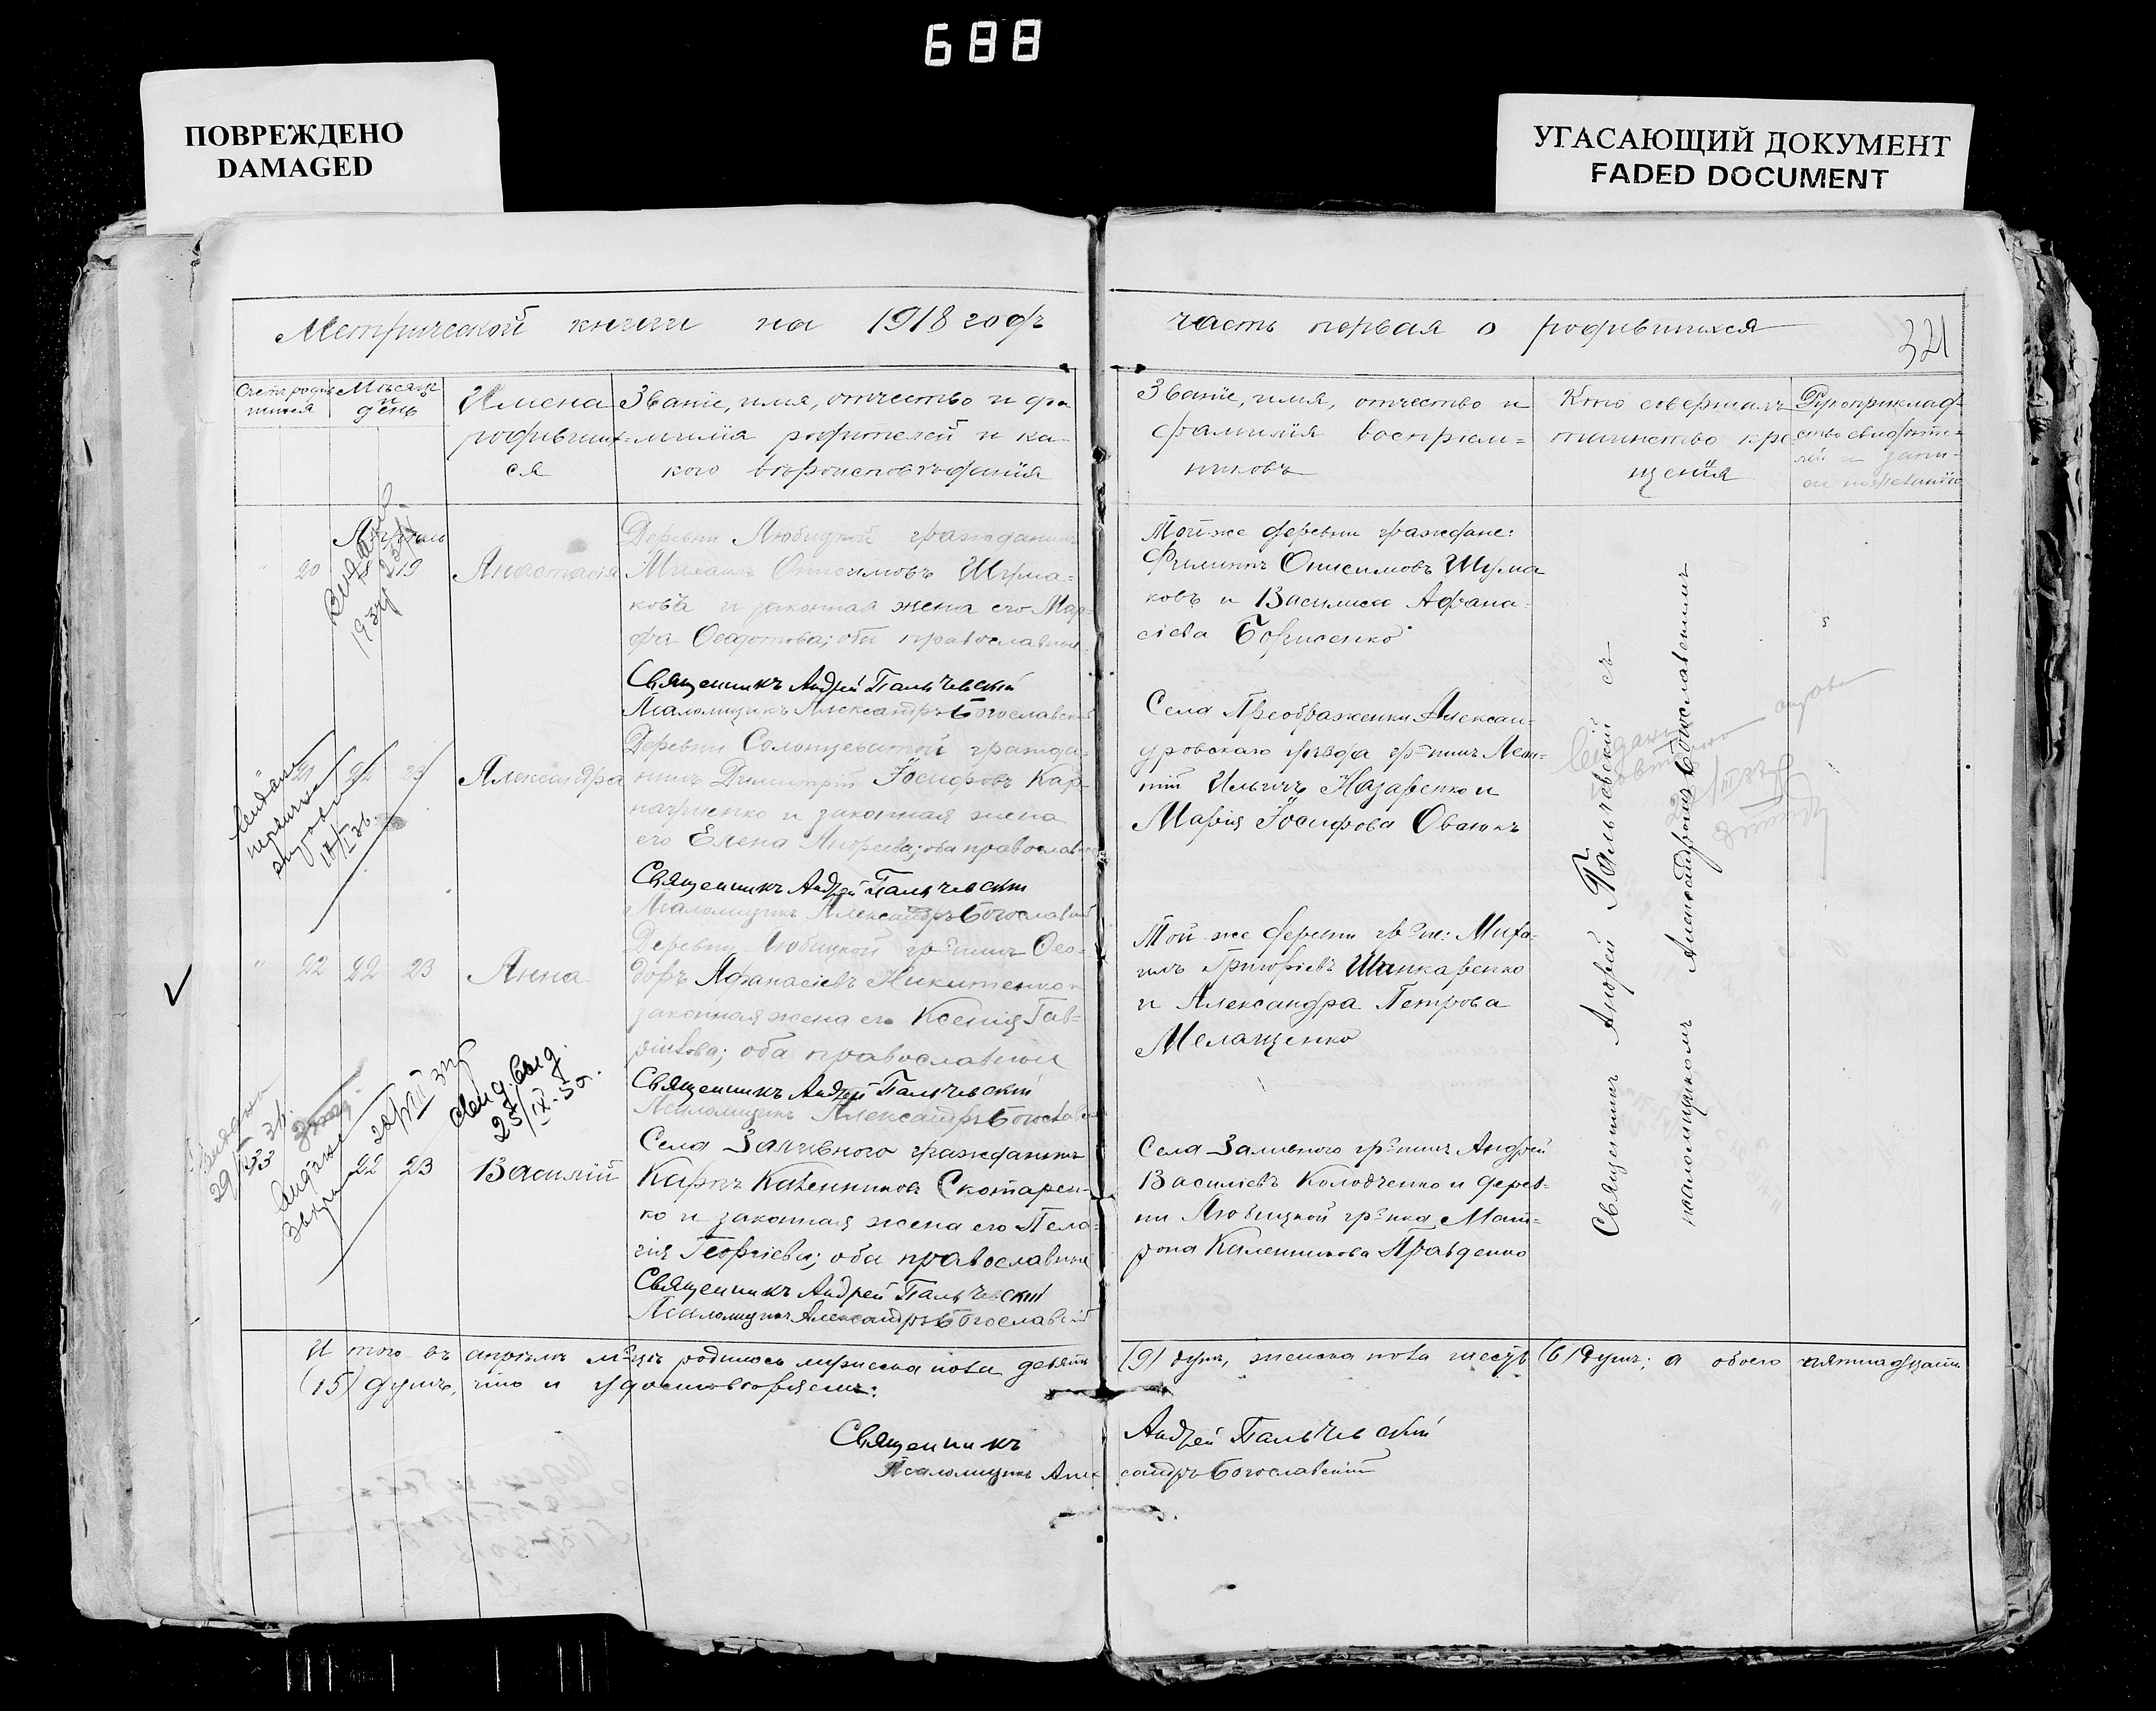 688
ПОВРЕЖДЕНО
DAMAGED
УГАСАЮЩИЙ ДОКУМЕНТ
FADED DOCUMENT
Метрической книги на 1918 годъ
часть первая о родившихся
321
Счетъ роди
Мѣсяцъ
и
день
Имена
родивших=
ся
Званіе, имя, отчество и фа
милія родителей и ка-
кого вѣроисповѣданія
Званіе, имя, отчество и
фамилія воспріем=
никовъ
Кто совершалъ
таинство кре
щенія
Рукоприклад-
ство свидѣте=
лей и запи-
си
20
19
Анастасія
Деревни Любицкой гражданинъ
Михаилъ Онисимовъ Шума=
ковъ и законная жена его Мар=
фа Ѳеодотова; оба православны
Священникъ Андрей Пальчевскій
Псаломщикъ Александръ Богославскій
Той-же деревни граждане:
Филиппъ Онисимовъ Шума
ковъ и Василиса Афана-
сіева Борисенко
21 22 23
Александра
Деревни Солонцеватой гражда-
нинъ Димитрій Іосифовъ Кар
науненко и законная жена
его Елена Андреева; оба православны
Священникъ Андрей Пальчевскій
Псаломщикъ Александръ Богославскій
Села Преображенки Алексан-
дровскаго уѣзда гр-нинъ Леон-
тій Ильичъ Назаренко и
Марія Іосифова Овсюкъ
22 22 23
Анна
Деревни Любицкой гр-нинъ Ѳео-
доръ Афанасіевъ Никитенко и
законная жена его Ксенія Гав=
ріилова; оба православные
Священникъ Андрей Пальчевскій
Псаломщикъ Александръ Богославскій
Той-же деревни гр-не: Миха-
илъ Григоріевъ Шапкаренко
и Александра Петрова
Мелащенко
22 23
Василій
Села Заливного гражданинъ
Карпъ Каленниковъ Скотарен-
ко и законная жена его Пела=
гія Георгіева; оба православны
Священникъ Андрей Пальчевскій
Псаломщикъ Александръ Богославскій
Села Заливного гр-нинъ Андрей
Василіевъ Колодченко и дерев-
ни Любицкой гр-нка Мат=
рона Каленникова Правденко
Священникъ Андрей Пальчевскій съ
псаломщикомъ Александромъ Богославскимъ
И того въ апрѣлѣ м-цѣ родилось мужеска пола девять (9) душъ, женска пола шесть (6) душъ; а обоего пятнадцать
(15) душъ, что и удостовѣряемъ:
Священникъ Андрей Пальчевскій
Псаломщикъ Александръ Богославскій